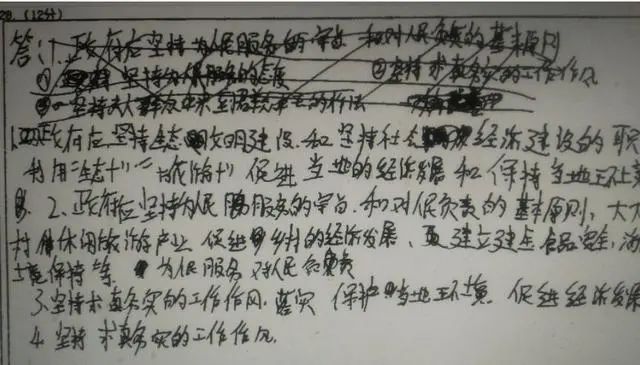 28.(12分)
答:1.政府应坚持为人民服务的宗旨 和对人民负责的基本原则
① 坚持为人民服务的态度 ②坚持求真务实的工作作风
③ 坚持从群众中来到群众中去的
1. 政府应坚持生态文明建设和坚持社会 经济建设的职
利用"生态+" "旅游+"促进当地的经济发展和保持当地环境
2、政府应坚持为人民服务的宗旨,和对人民负责的基本原则,大力
村休闲旅游产业,促进乡村的经济发展、建立健全食品安全,
保持等 为人民服务 对人民负责
3.坚持求真务实的工作作风,落实 保护当地环境,促进经济发展
4.坚持求真务实的工作作风.